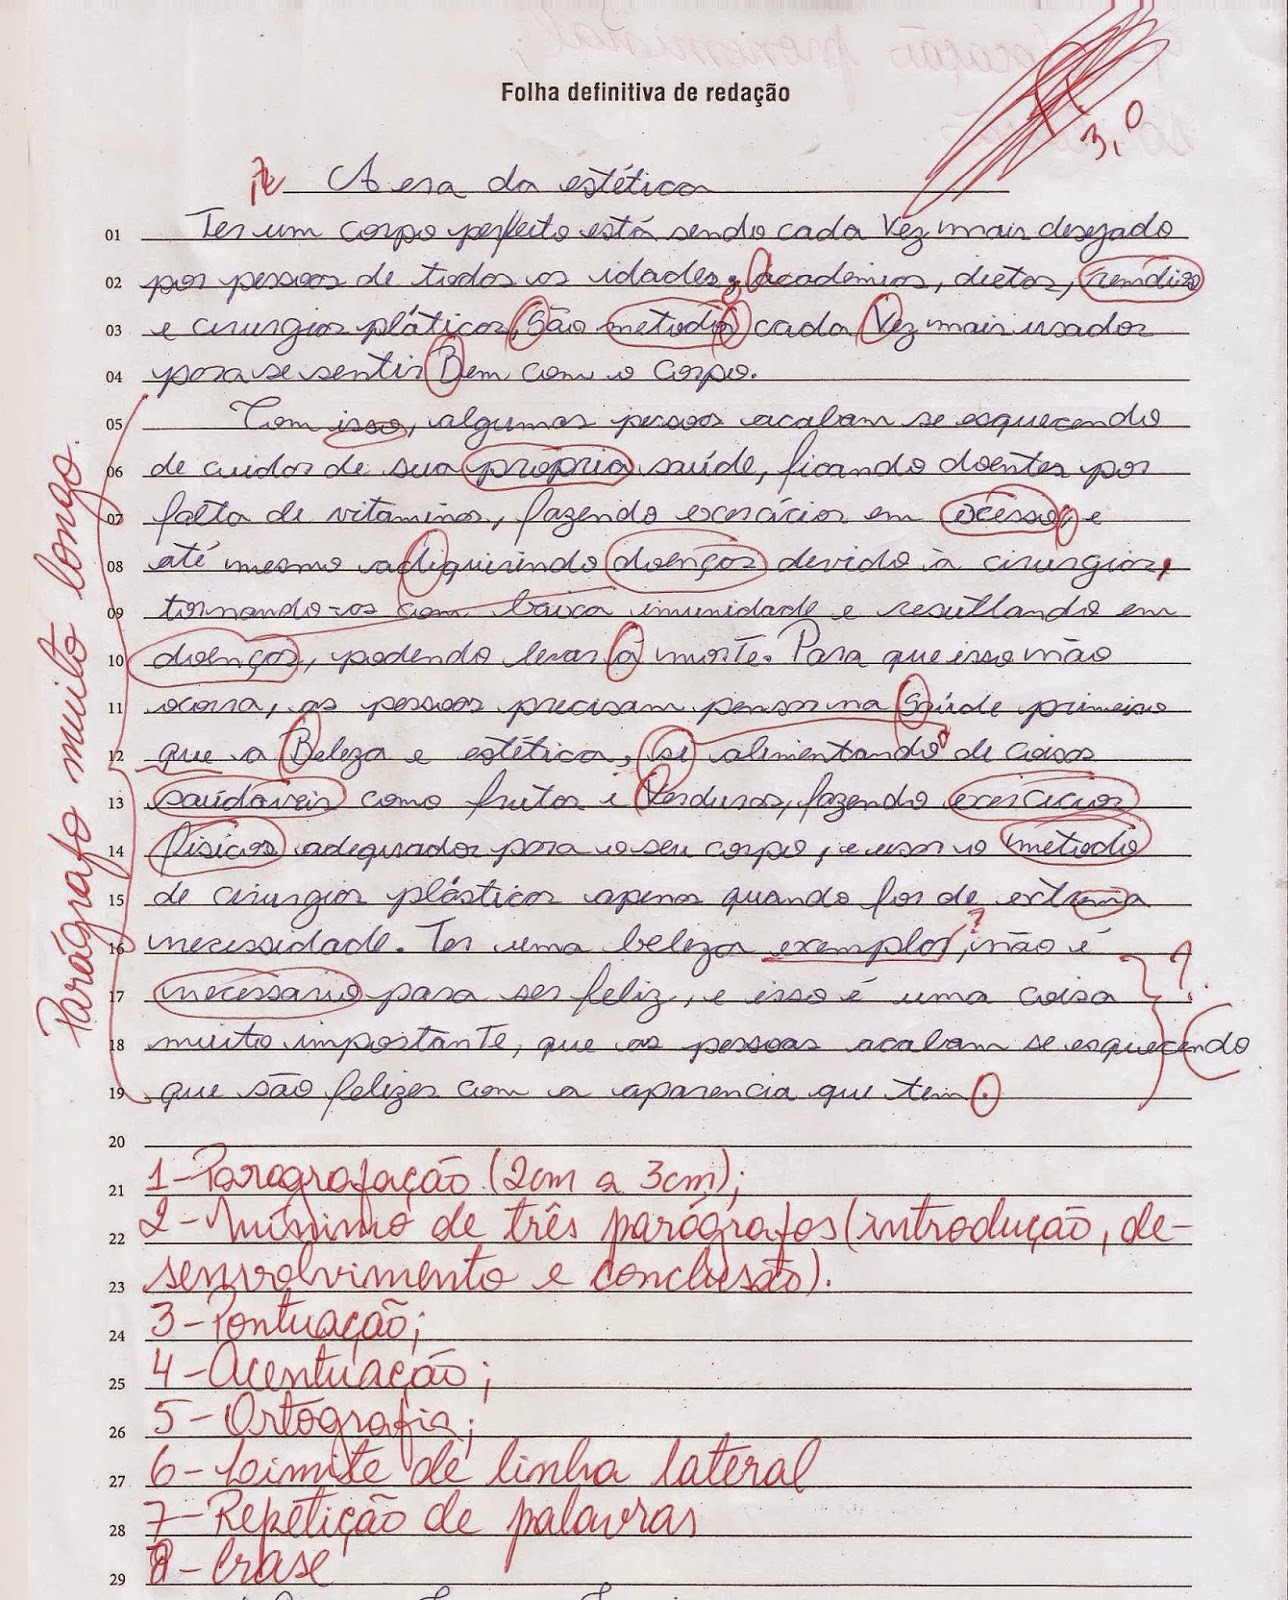 Folha definitiva de redação
3,0
A era da estética
01 Ter um corpo perfeito está sendo cada Vez mais desejado
02 por pessoas de todas as idades, academias, dietas, remdios
03 e cirurgias plásticas, São metodos cada Vez mais usados
04 para se sentir Bem com o corpo.
05 Com isso, algumas pessoas acabam se esquecendo
06 de cuidar de sua propria saúde, ficando doentes por
07 falta de vitaminas, fazendo exercícios em ecesso, e
08 até mesmo adiquirindo doenças devido à cirurgias,
09 tornando-os com baixa imunidade e resultando em
10 doenças, podendo levar à morte. Para que isso não
11 ocorra, as pessoas precisam pensar na Saúde primeiro
12 que a Beleza e estética, se alimentando de coisas
13 saúdaveis como frutas e Verduras, fazendo exercicios
14 fisicos adequados para o seu corpo, e usar o metodo
15 de cirurgias plásticas apenas quando for de extrema
16 necessidade. Ter uma beleza exemplar, não é
17 necessario para ser feliz, e isso é uma coisa
18 muito importante, que as pessoas acabam se esquecendo
19 que são felizes com a aparencia que tem.
Parágrafo muito longo.
?
?
20
21 1-Paragrafação (2cm a 3cm);
22 2-Mínimo de três parágrafos (introdução, de-
23 senvolvimento e conclusão).
24 3-Pontuação;
25 4-Acentuação;
26 5-Ortografia;
27 6-Limite de linha lateral
28 7-Repetição de palavras
29 8-Crase